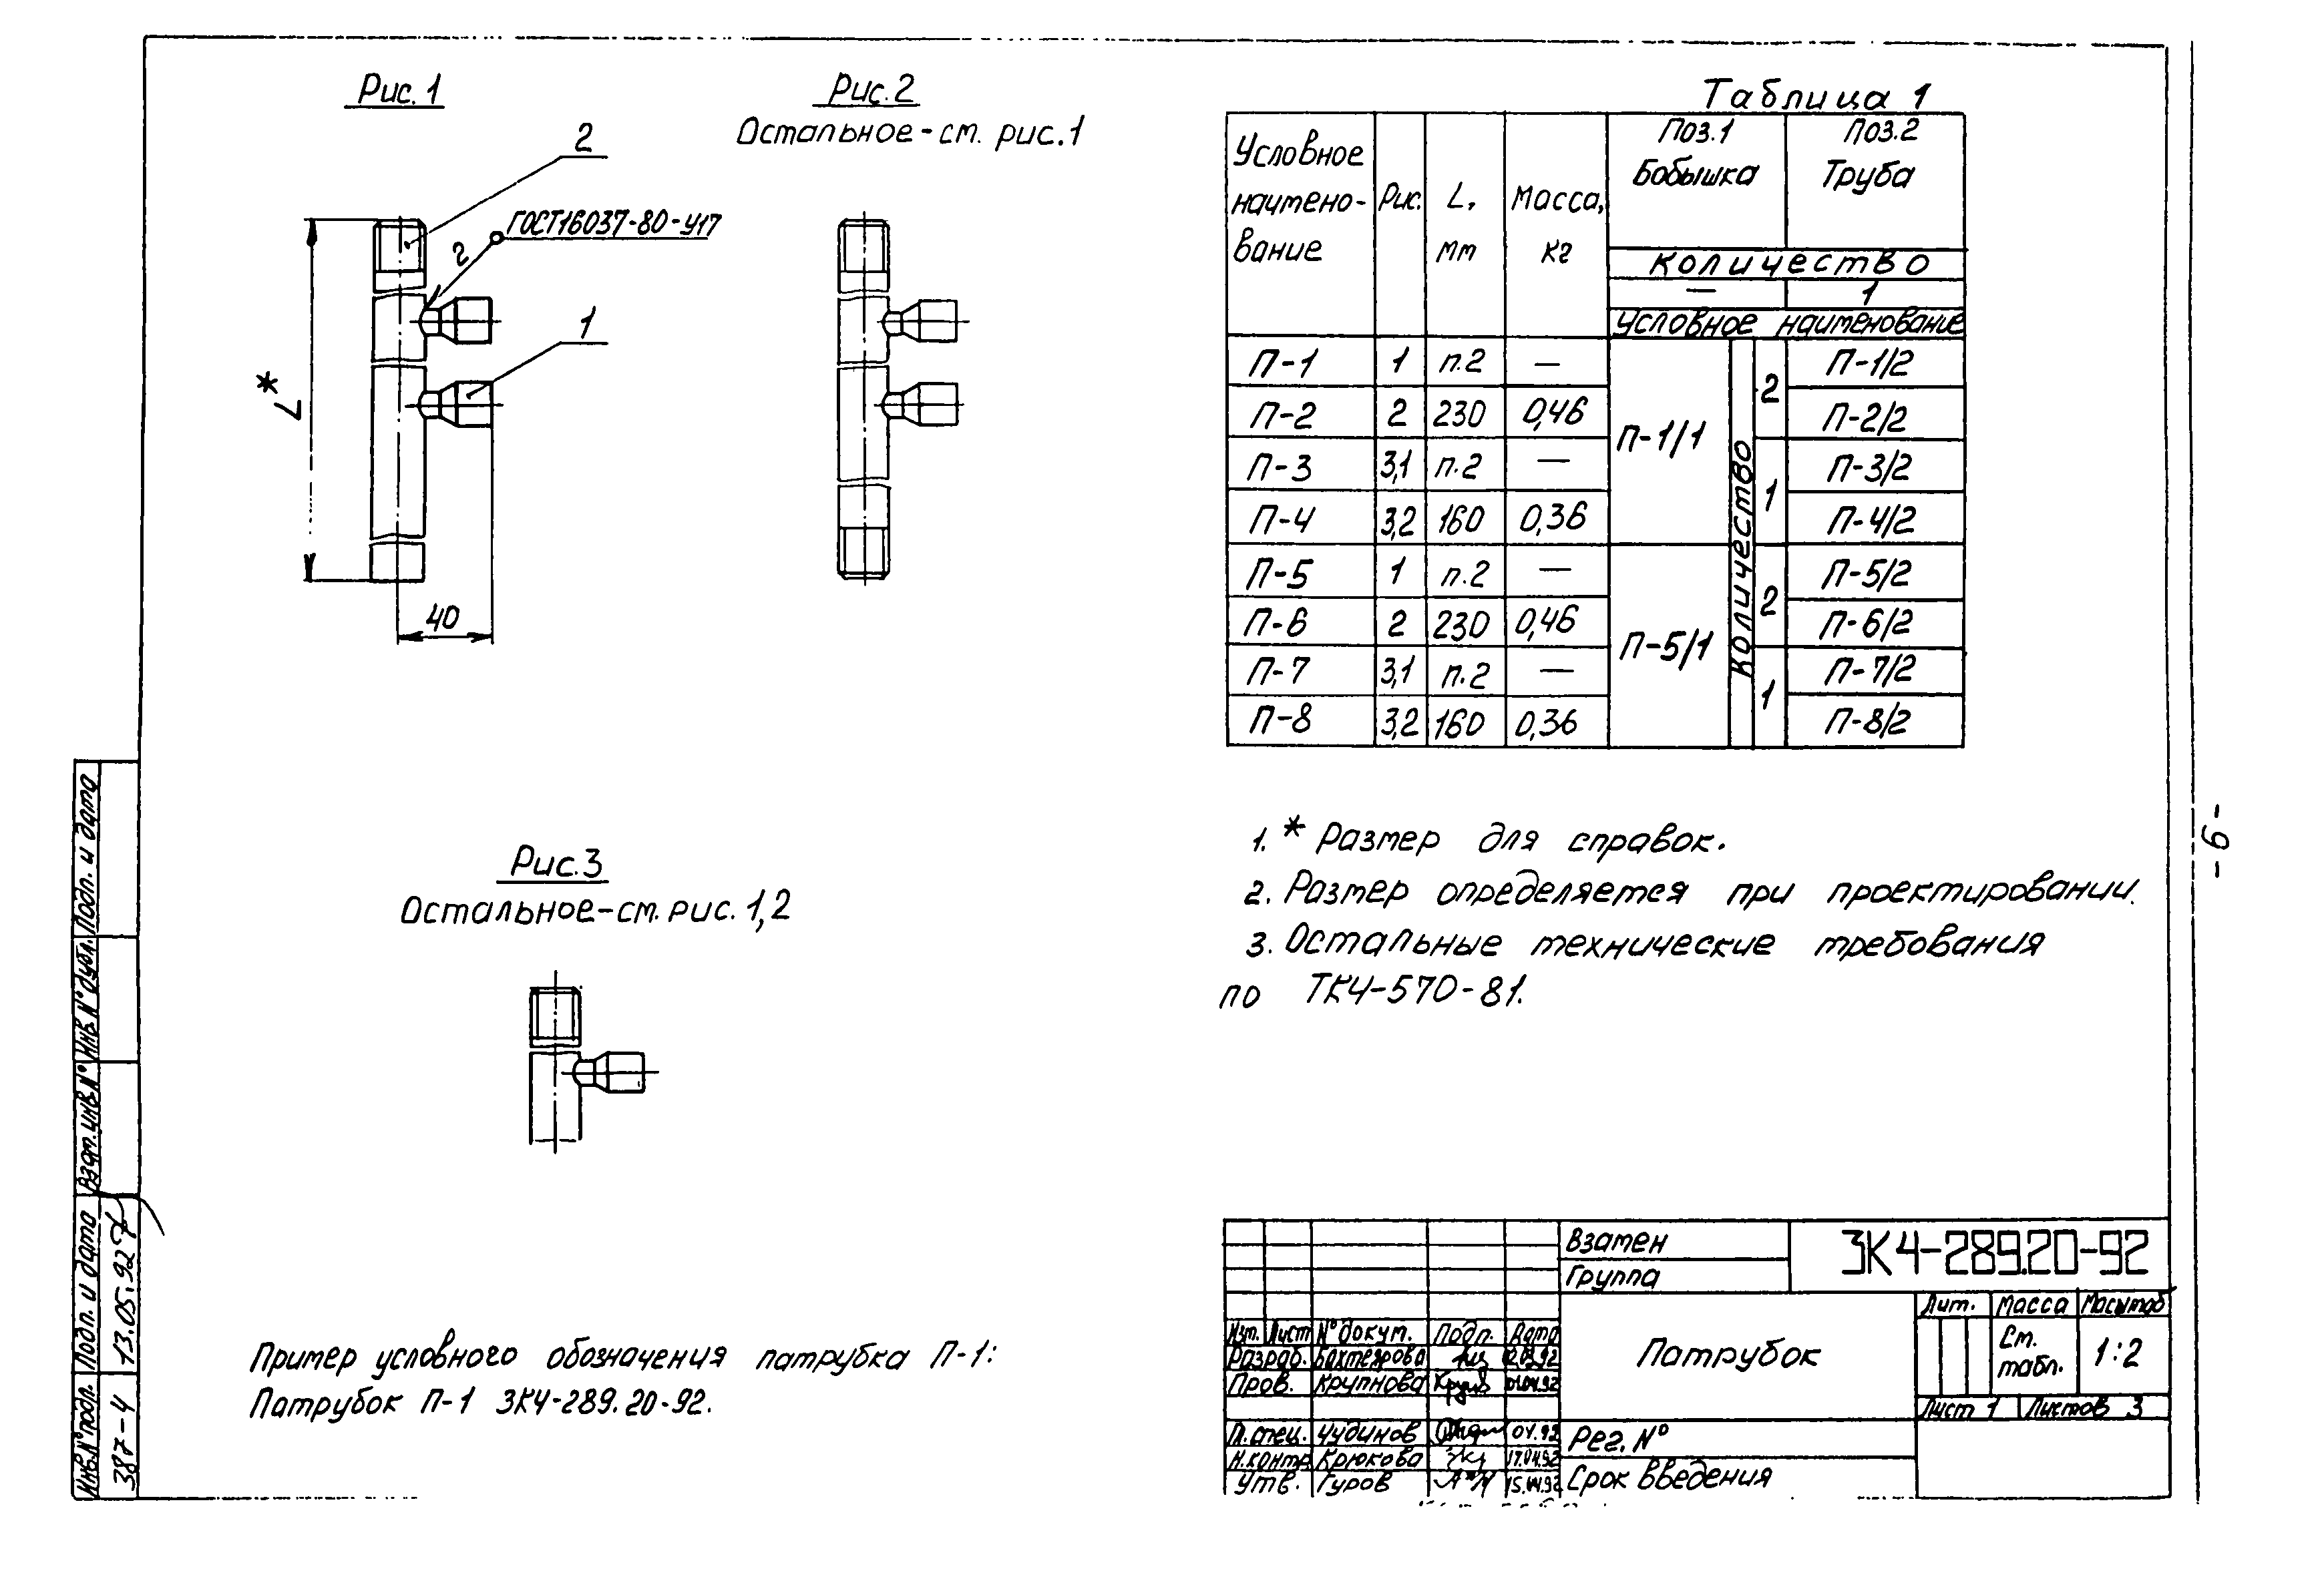 Рис.1
2
ГОСТ16037-80-У17
2
1
L*
40
Рис.2
Остальное-см. рис.1
Рис.3
Остальное-см. рис. 1,2
Таблица 1
Условное наимено-вание | Рис. | L, мм | Масса, кг | Поз.1 Бобышка | Поз.2 Труба
Количество
— | 1
Условное наименование
П-1 | 1 | п.2 | — | П-1/1 | Количество | 2 | П-1/2
П-2 | 2 | 230 | 0,46 | П-2/2
П-3 | 3,1 | п.2 | — | 1 | П-3/2
П-4 | 3,2 | 160 | 0,36 | П-4/2
П-5 | 1 | п.2 | — | П-5/1 | 2 | П-5/2
П-6 | 2 | 230 | 0,46 | П-6/2
П-7 | 3,1 | п.2 | — | 1 | П-7/2
П-8 | 3,2 | 160 | 0,36 | П-8/2
1. * Размер для справок.
2. Размер определяется при проектировании.
3. Остальные технические требования
по ТК4-570-81.
-6-
Пример условного обозначения патрубка П-1:
Патрубок П-1 ЗК4-289.20-92.
Подп. и дата
Инв.N° дубл.
Взам.инв.N°
Подп. и дата
13.05.92
Инв.N°подл.
387-4
Взамен
Группа
ЗК4-289.20-92
Изм. Лист N°докум. Подп. Дата
Разраб. Бахтеярова 02.03.92
Пров. Крупнова 01.04.92
Гл.спец. Чудинов 04.92
Н.контр. Крюкова 17.04.92
Утв. Гуров 15.04.92
Патрубок
Лит. Масса Масштаб
См. табл. 1:2
Лист 1 Листов 3
Рег. N°
Срок введения